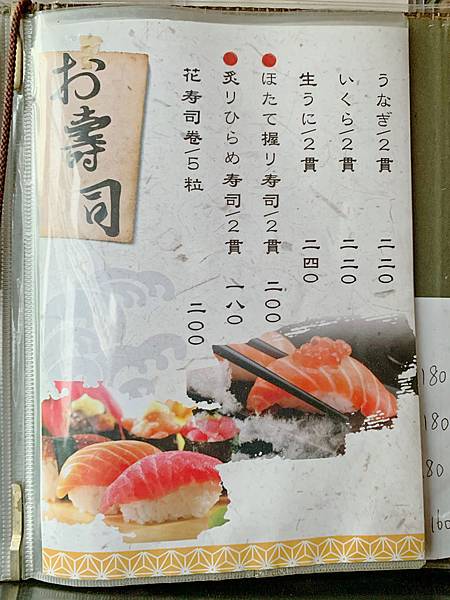 お壽司
うなぎ/2貫 二二〇
いくら/2貫 二二〇
生うに/2貫 二四〇
ほたて握り寿司/2貫 二〇〇
炙りひらめ寿司/2貫 一八〇
花寿司卷/5粒 二〇〇
180
180
80
160